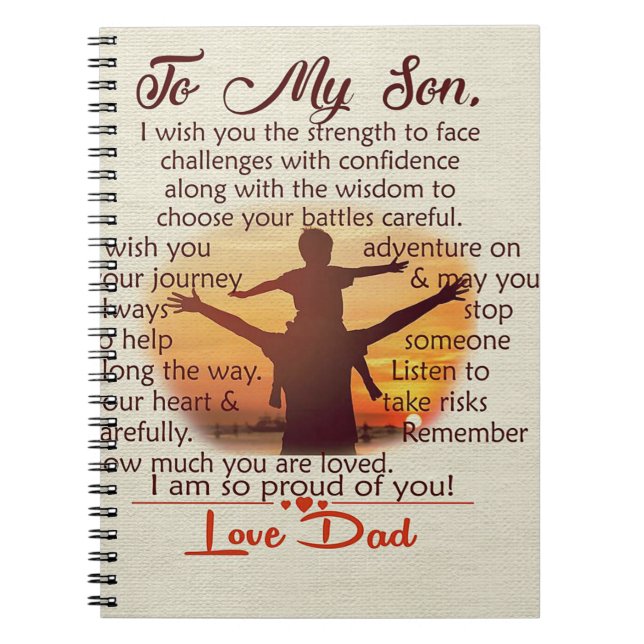 To My Son,
I wish you the strength to face
challenges with confidence
along with the wisdom to
choose your battles careful.
wish you adventure on
our journey & may you
ways stop
o help someone
long the way. Listen to
our heart & take risks
arefully. Remember
ow much you are loved.
I am so proud of you!
Love Dad